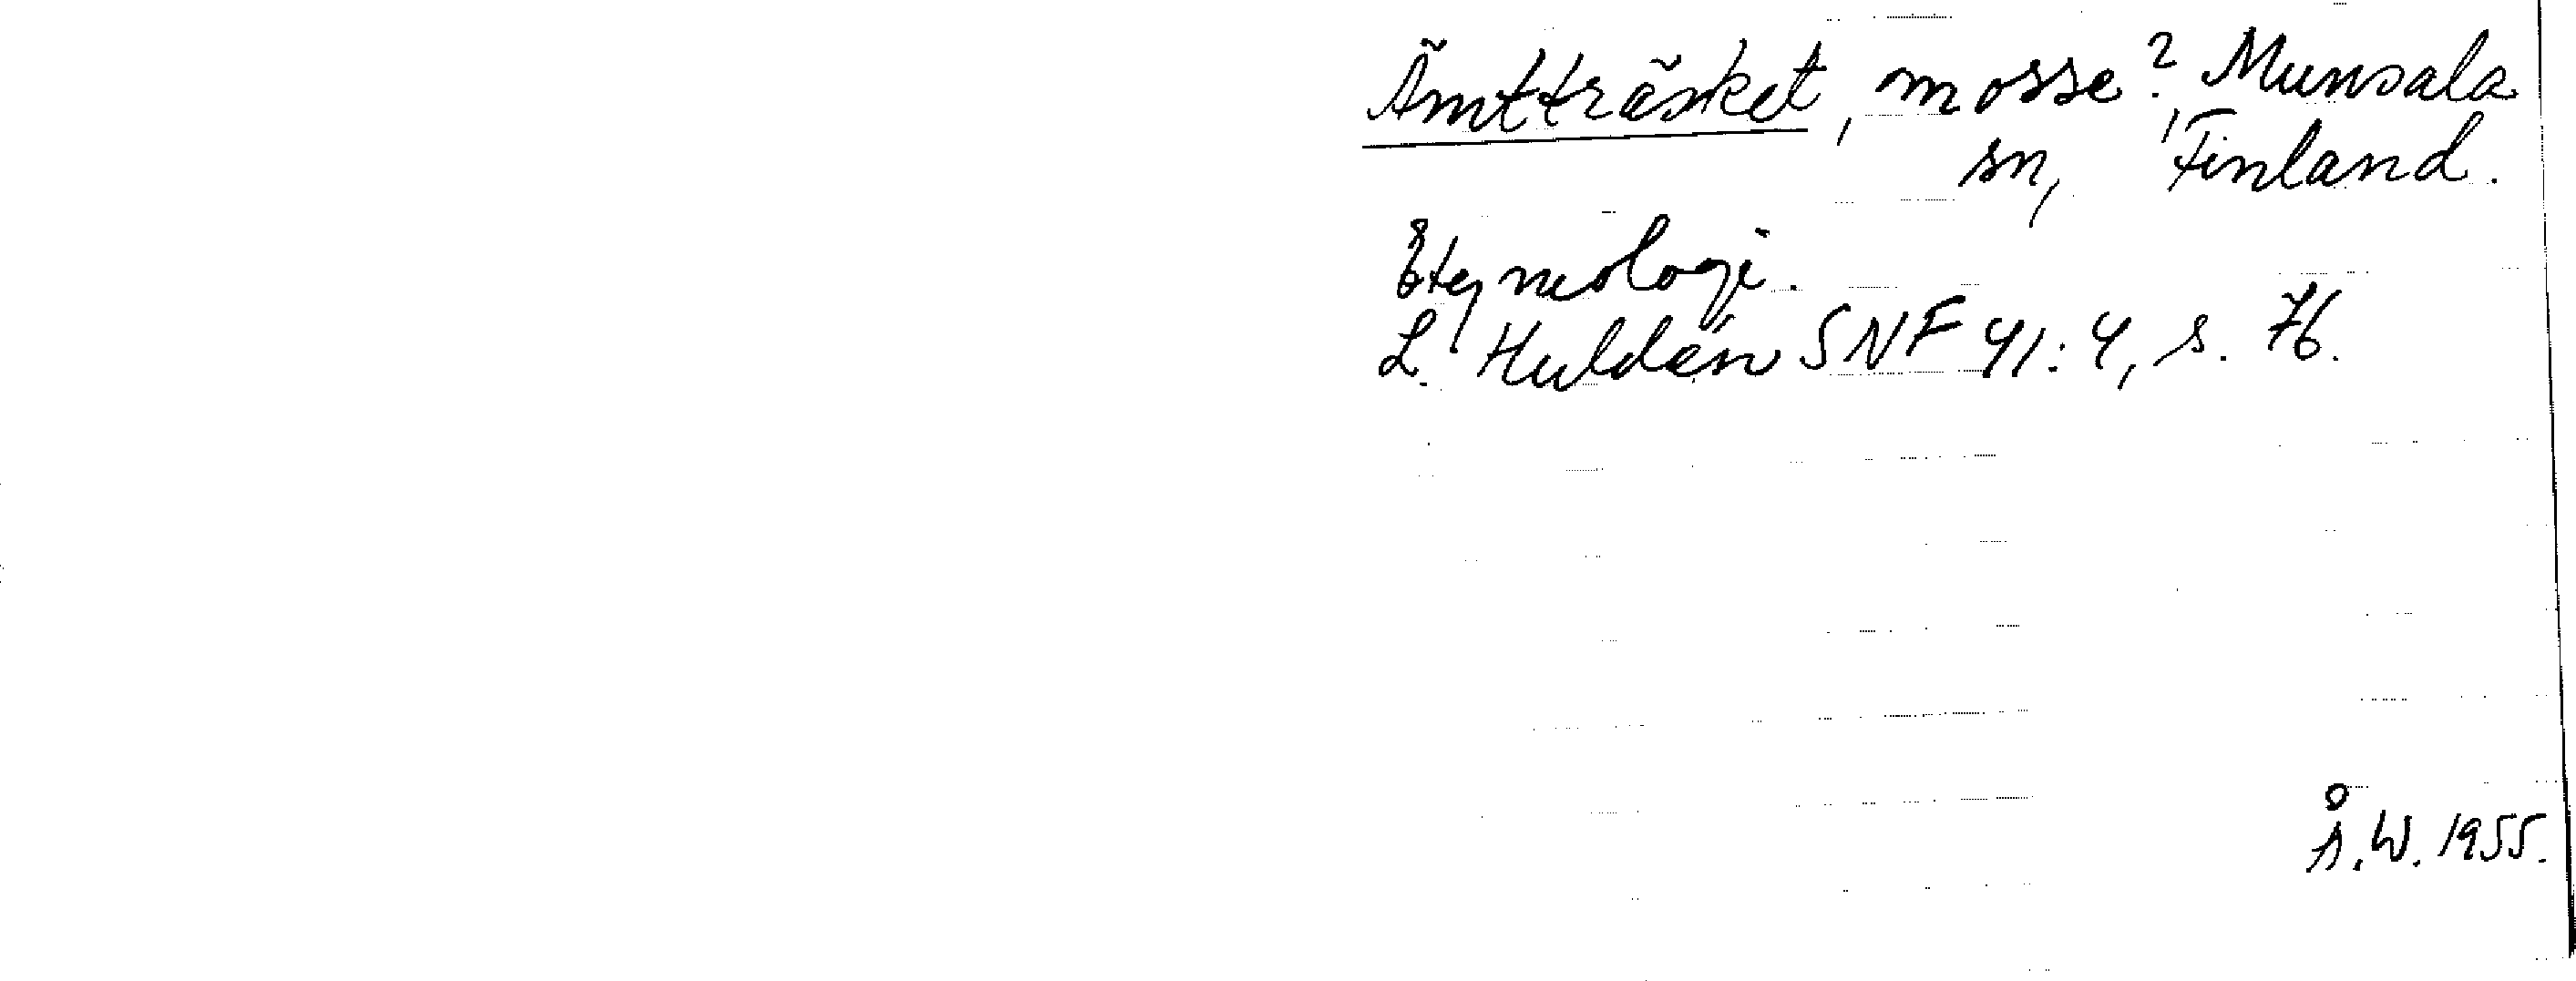 Ämtträsket, mosse?, Munsala
sn, Finland.
Etymologi.
L. Huldén SNF 41:4, s. 76.
Å.W. 1955.